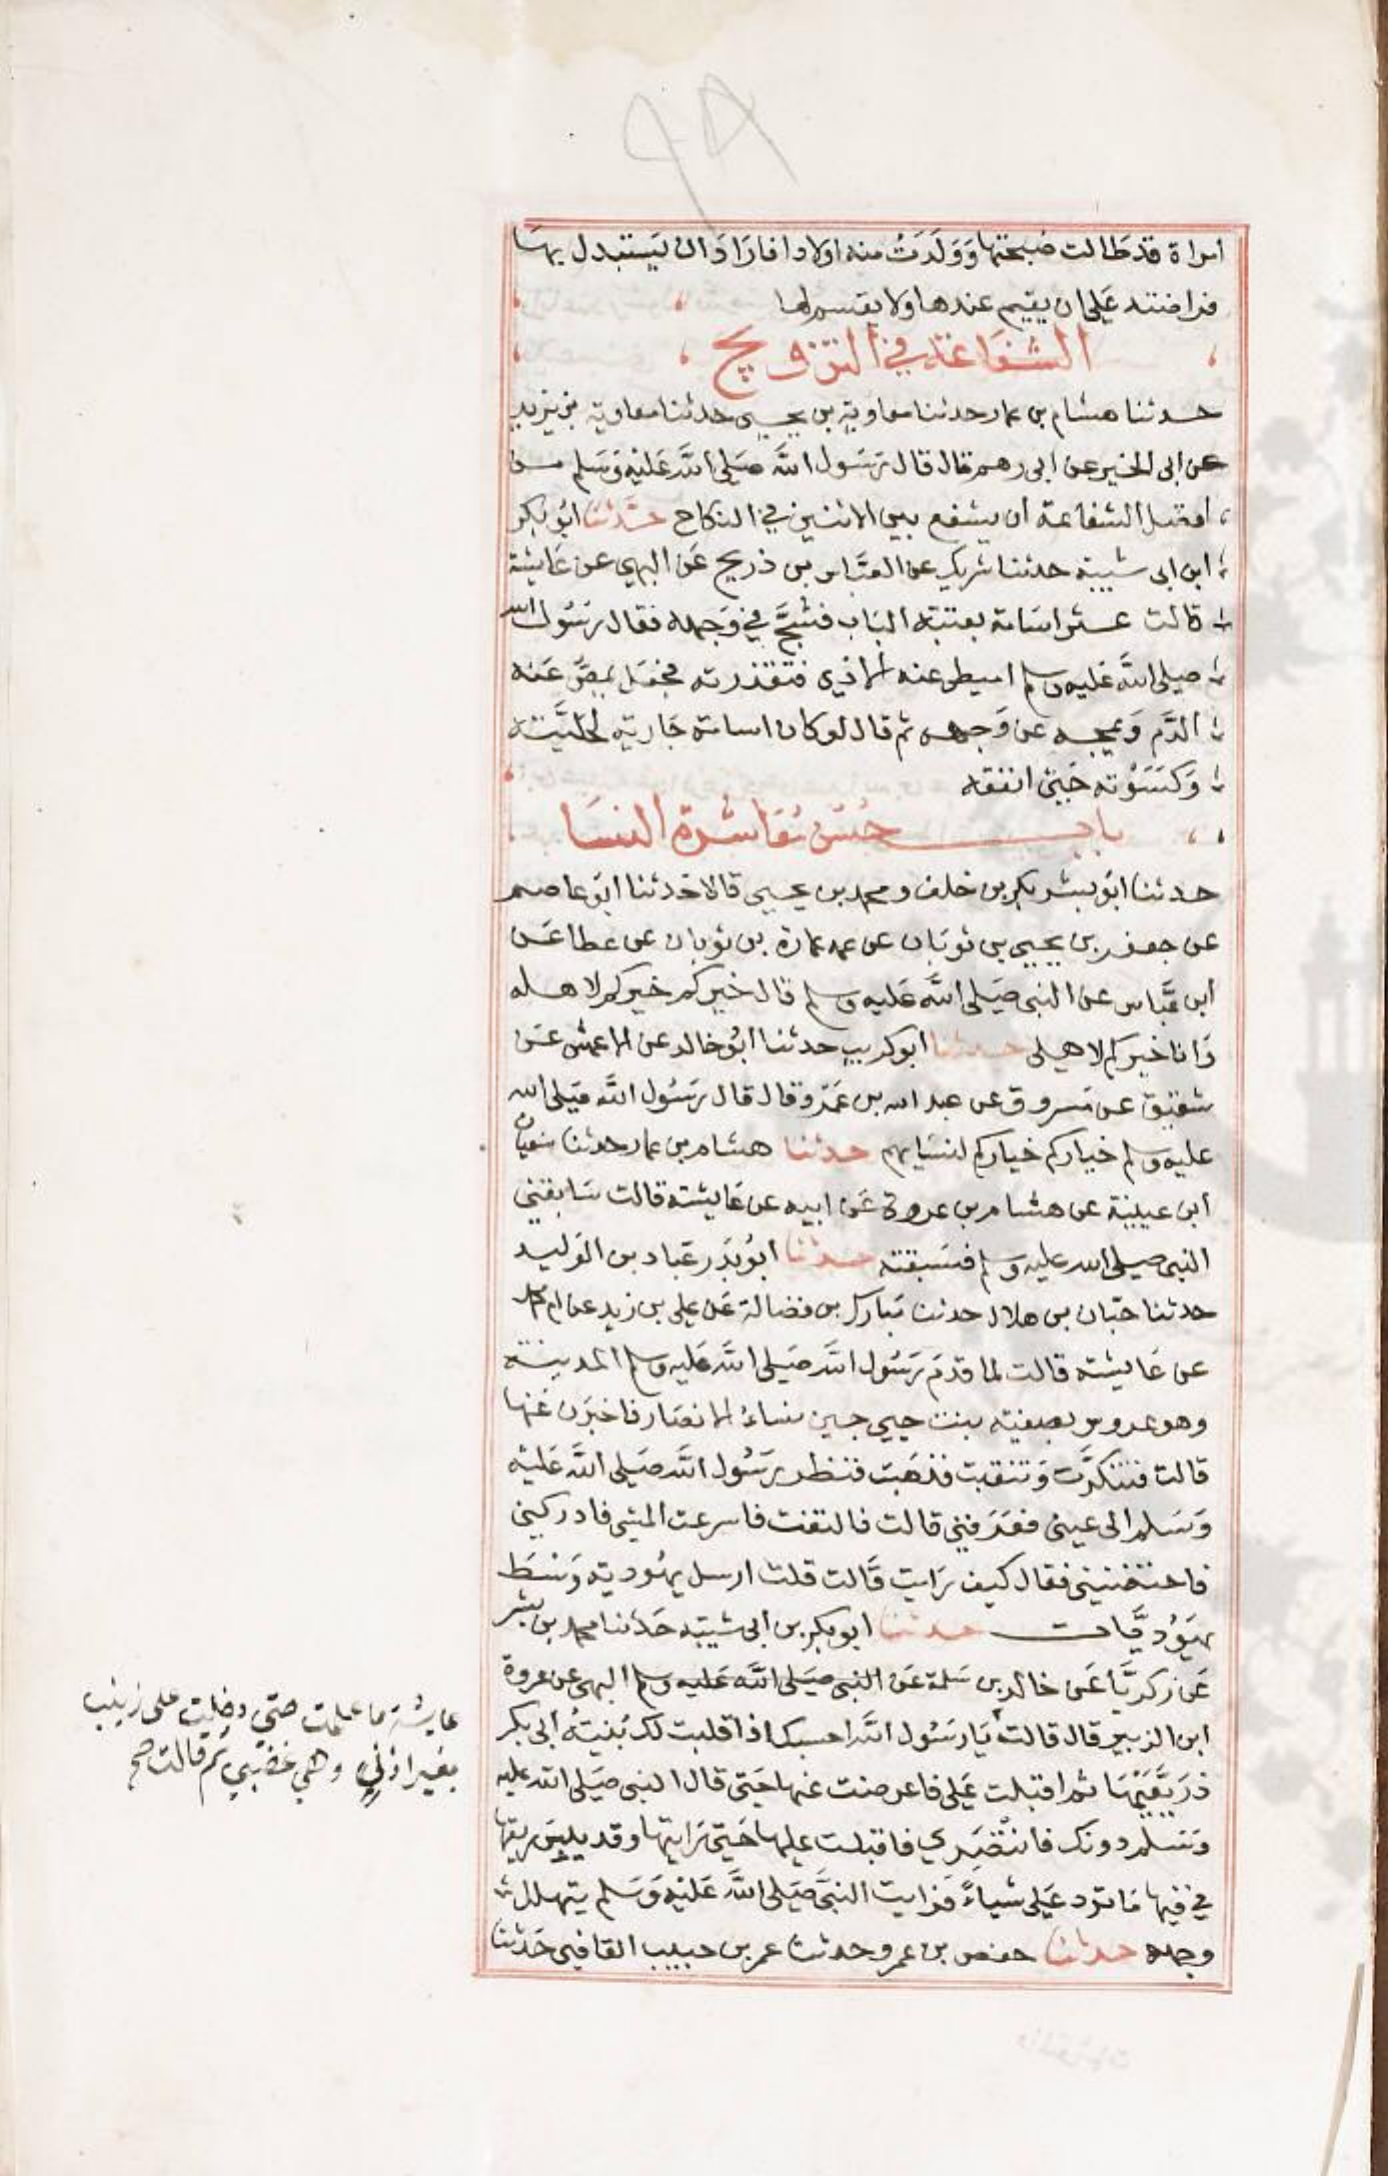 ٩٨
امراة قد طالت صحبتها وَوَلَدَتْ منه اولادا فارَادَ ان يَستبدل بهَا
فراضته عَلى ان يقيم عندها ولا يقسم لها
الشفَاعَة في التزويج
حدثنا هشام بن عمار حدثنا معاوية بن يحيى حدثنا معاوية بن يزيد
عن ابي الخير عن ابي رهم قال قال رَسَول اللَّه صَلى اللَّه عَليْه وَسَلم من
افضل الشفاعة أن يشفع بين الاثنين في النكاح حَدَّثنا ابُو بكر
ابن ابي شيبة حدثنا شريك عن العبَّاس بن ذريح عَن البهي عن عَايشة
قالت عثر اسَامة بعتبة البَاب فشجَّ في وَجهه فقال رسُول الله
صلى اللَّه عَليه وسلم اميطي عنه الاذي فتقذرته فجعَل يمصّ عَنه
الدَّم وَيمجه عن وَجهه ثم قال لو كان اسامة جَارية لحليَّته
وَكسَوْته حَتى انفقه
باب حُسْن مُعَاشرة النسَا
حدثنا ابُو بشر بكر بن خلف ومحمد بن يحيى قالا حَدثنا ابو عاصم
عن جعفر بن يحيى بن ثوبَان عن عمه عمارة بن ثوبان عن عطا عَن
ابن عبَّاس عن النبي صَلى اللَّه عَليه وسلم قال خيركم خيركم لاهله
وَانا خيركم لاهلي حدثنا ابو كريب حدثنا ابُو خالد عن الاعمش عَن
شقيق عن مَسروق عن عبد الله بن عَمرو قال قال رَسُول اللَّه صَلى الله
عليه وسلم خياركم خياركم لنسَايهم حدثنا هشام بن عمار حدثنا سفيان
ابن عيينة عن هشام بن عروة عَن ابيه عن عَايشة قالت سَابقني
النبي صلى الله عليه وسلم فسَبقته حدثنا ابُو بَدر عَباد بن الوَليد
حدثنا حبّان بن هلال حدثنا مبَارك بن فضالة عَن علي بن زيد عن ام محمد
عن عَايشة قالت لما قدمَ رَسُول اللَّه صَلى اللَّه عَليه وسلم المدينة
وهو عروس بصفية بنت حيي جين نساءُ الانصَار فاخبرَن عَنها
قالت فتنكرَّت وَتنقبت فذهَبت فنظر رسُول اللَّه صَلى اللَّه عَليْه
وَسَلم الى عيني فعَرَفني قالت فالتفت فاسرعت المشي فادركني
فاحتضنني فقال كيف رَايت قَالت قلت ارسل يهُودية وَسْط
يهَوُديَّات حدثنا ابو بكر بن ابي شيبَة حَدثنا محمد بن بشر
عَن زكريَّا عَن خالد بن سَلمة عَن النبي صَلى اللَّه عَليه وسلم البهي عن عروة
ابن الزبير قال قالت يَا رسَول اللَّه احسبك اذا قلبت لك بُنيةُ ابي بكر
ذرَيَّعَيْهَا ثم اقبلت عَلي فاعرضت عَنها حَتى قال النبي صَلى الله عليه
وَسَلم دونك فانتْصَري فاقبلت عليهَا حَتى رَايتها وقد يبسَ ريقها
في فيها مَا ترد عَلي شياءً فرَايت النبيَّ صَلى اللَّه عَليْه وَسَلم يتهلل
وجهه حدثنا حفص بن عمرو حدثنا عمر بن حبيب القاضي حَدثنا
عايشة ما علمت حتي دخلت علي زينب
بغير اذني وهي غضبي ثم قالت صح